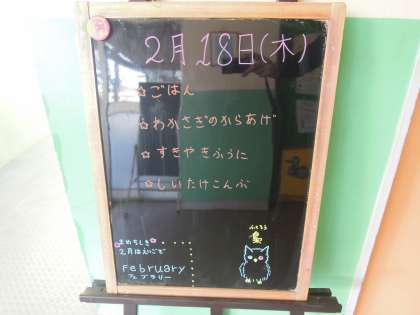 2月18日(木)
☆ごはん
☆わかさぎのからあげ
☆すきやきふうに
☆しいたけこんぶ
ふくろう
まめちしき
2月はえいごで
February
フェブラリー